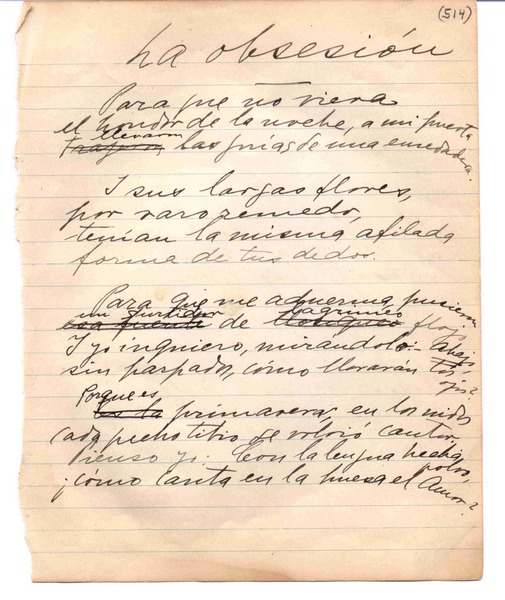 (514)
La obsesión
Para que no viera
el hondor de la noche, a mi puerta
llevaron
trajeron las guías de una enredadera.
I sus largas flores,
por raro remedo,
tenían la misma afilada
forma de tus dedos.
Para que me aduerma, pusieron
un surtidor
esa fuente de
I yo inquiero, mirándolo: - abajo,
sin parpados, cómo llorarán tus
ojos?
Porque es
es la primavera, en los nidos
cada pecho tibio se volvió cantor.
Pienso yo: Con la lengua hecha
polvo,
¡cómo canta en la huesa el Amor?